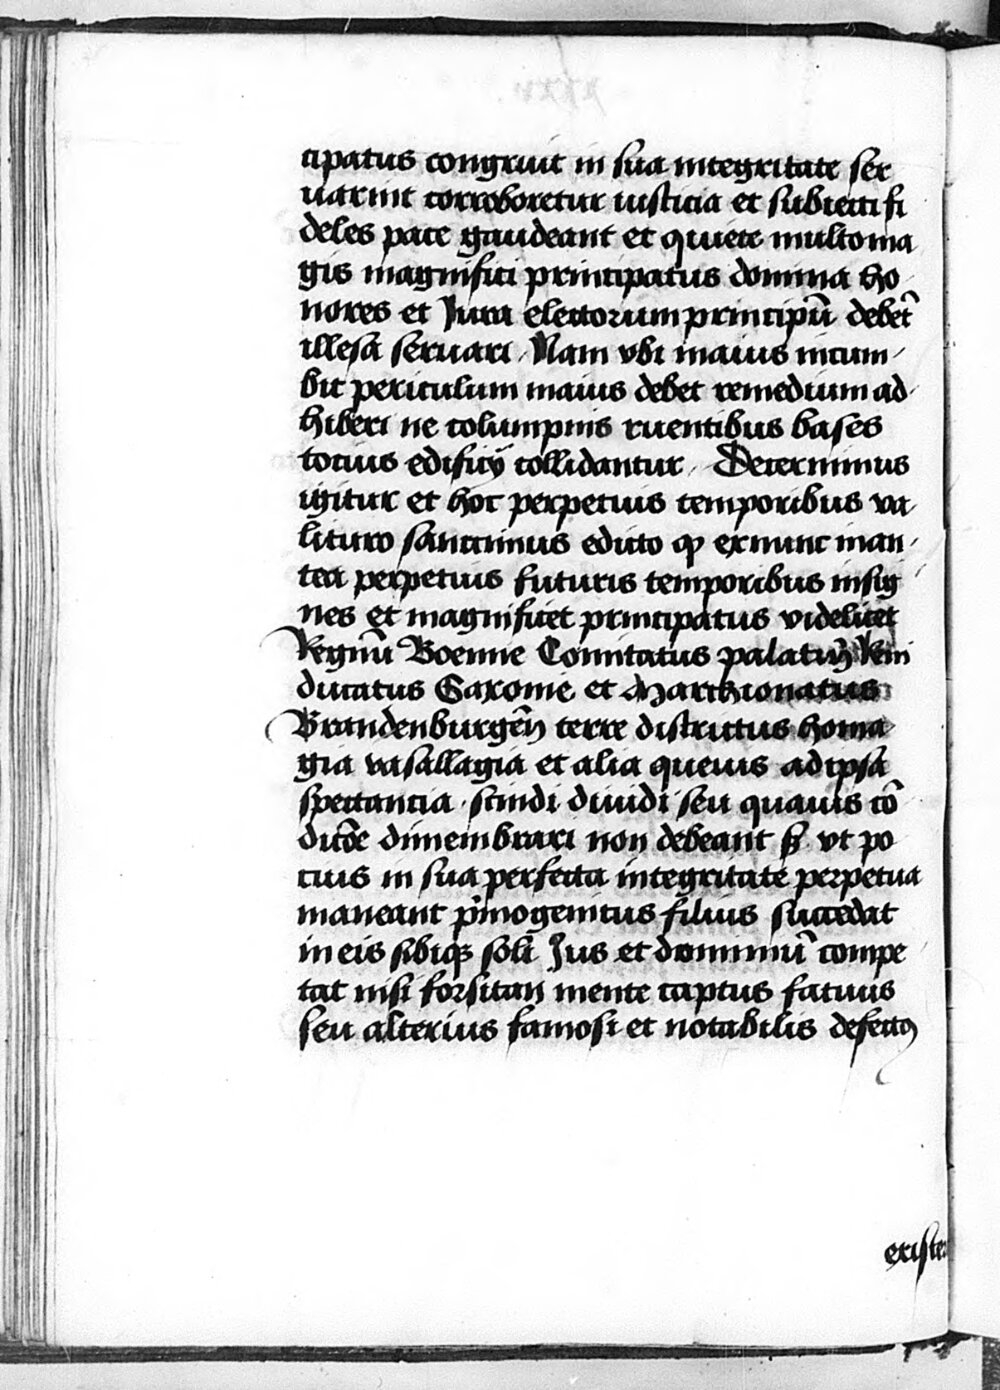 cipatus congruit in sua integritate ser
uarint corroboretur iusticia et subiecti fi
deles pace gaudeant et quiete multo ma
gis magnifici principatus dominia ho
nores et Jura electorum principū debēt
illesa seruari Nam vbi maius incum-
bit periculum maius debet remedium ad
hiberi ne columpnis ruentibus bases
tocius edificij collidantur Decernimus
igitur et hoc perpetuis temporibus va
lituro sanccimus edicto ꝙ exnunc inan-
tea perpetuis futuris temporibus insig
nes et magnifici et principatus videlicet
Regnū Boemie Comitatus palatinꝰ Reni
ducatus Saxonie et Marchionatus
Brandenburgeñ terre districtus homa
gia vasallagia et alia queuis ad ipsa
spectantia scindi diuidi seu quauis cō
dicōe dimembrari non debeant sꝫ vt po
cius in sua perfecta integritate perpetua
maneant pͥmogenitus filius succedat
in eis sibiqꝫ soli Jus et dominiū compe
tat nisi forsitan mente captus fatuus
seu alterius famosi et notabilis defectꝰ
existe